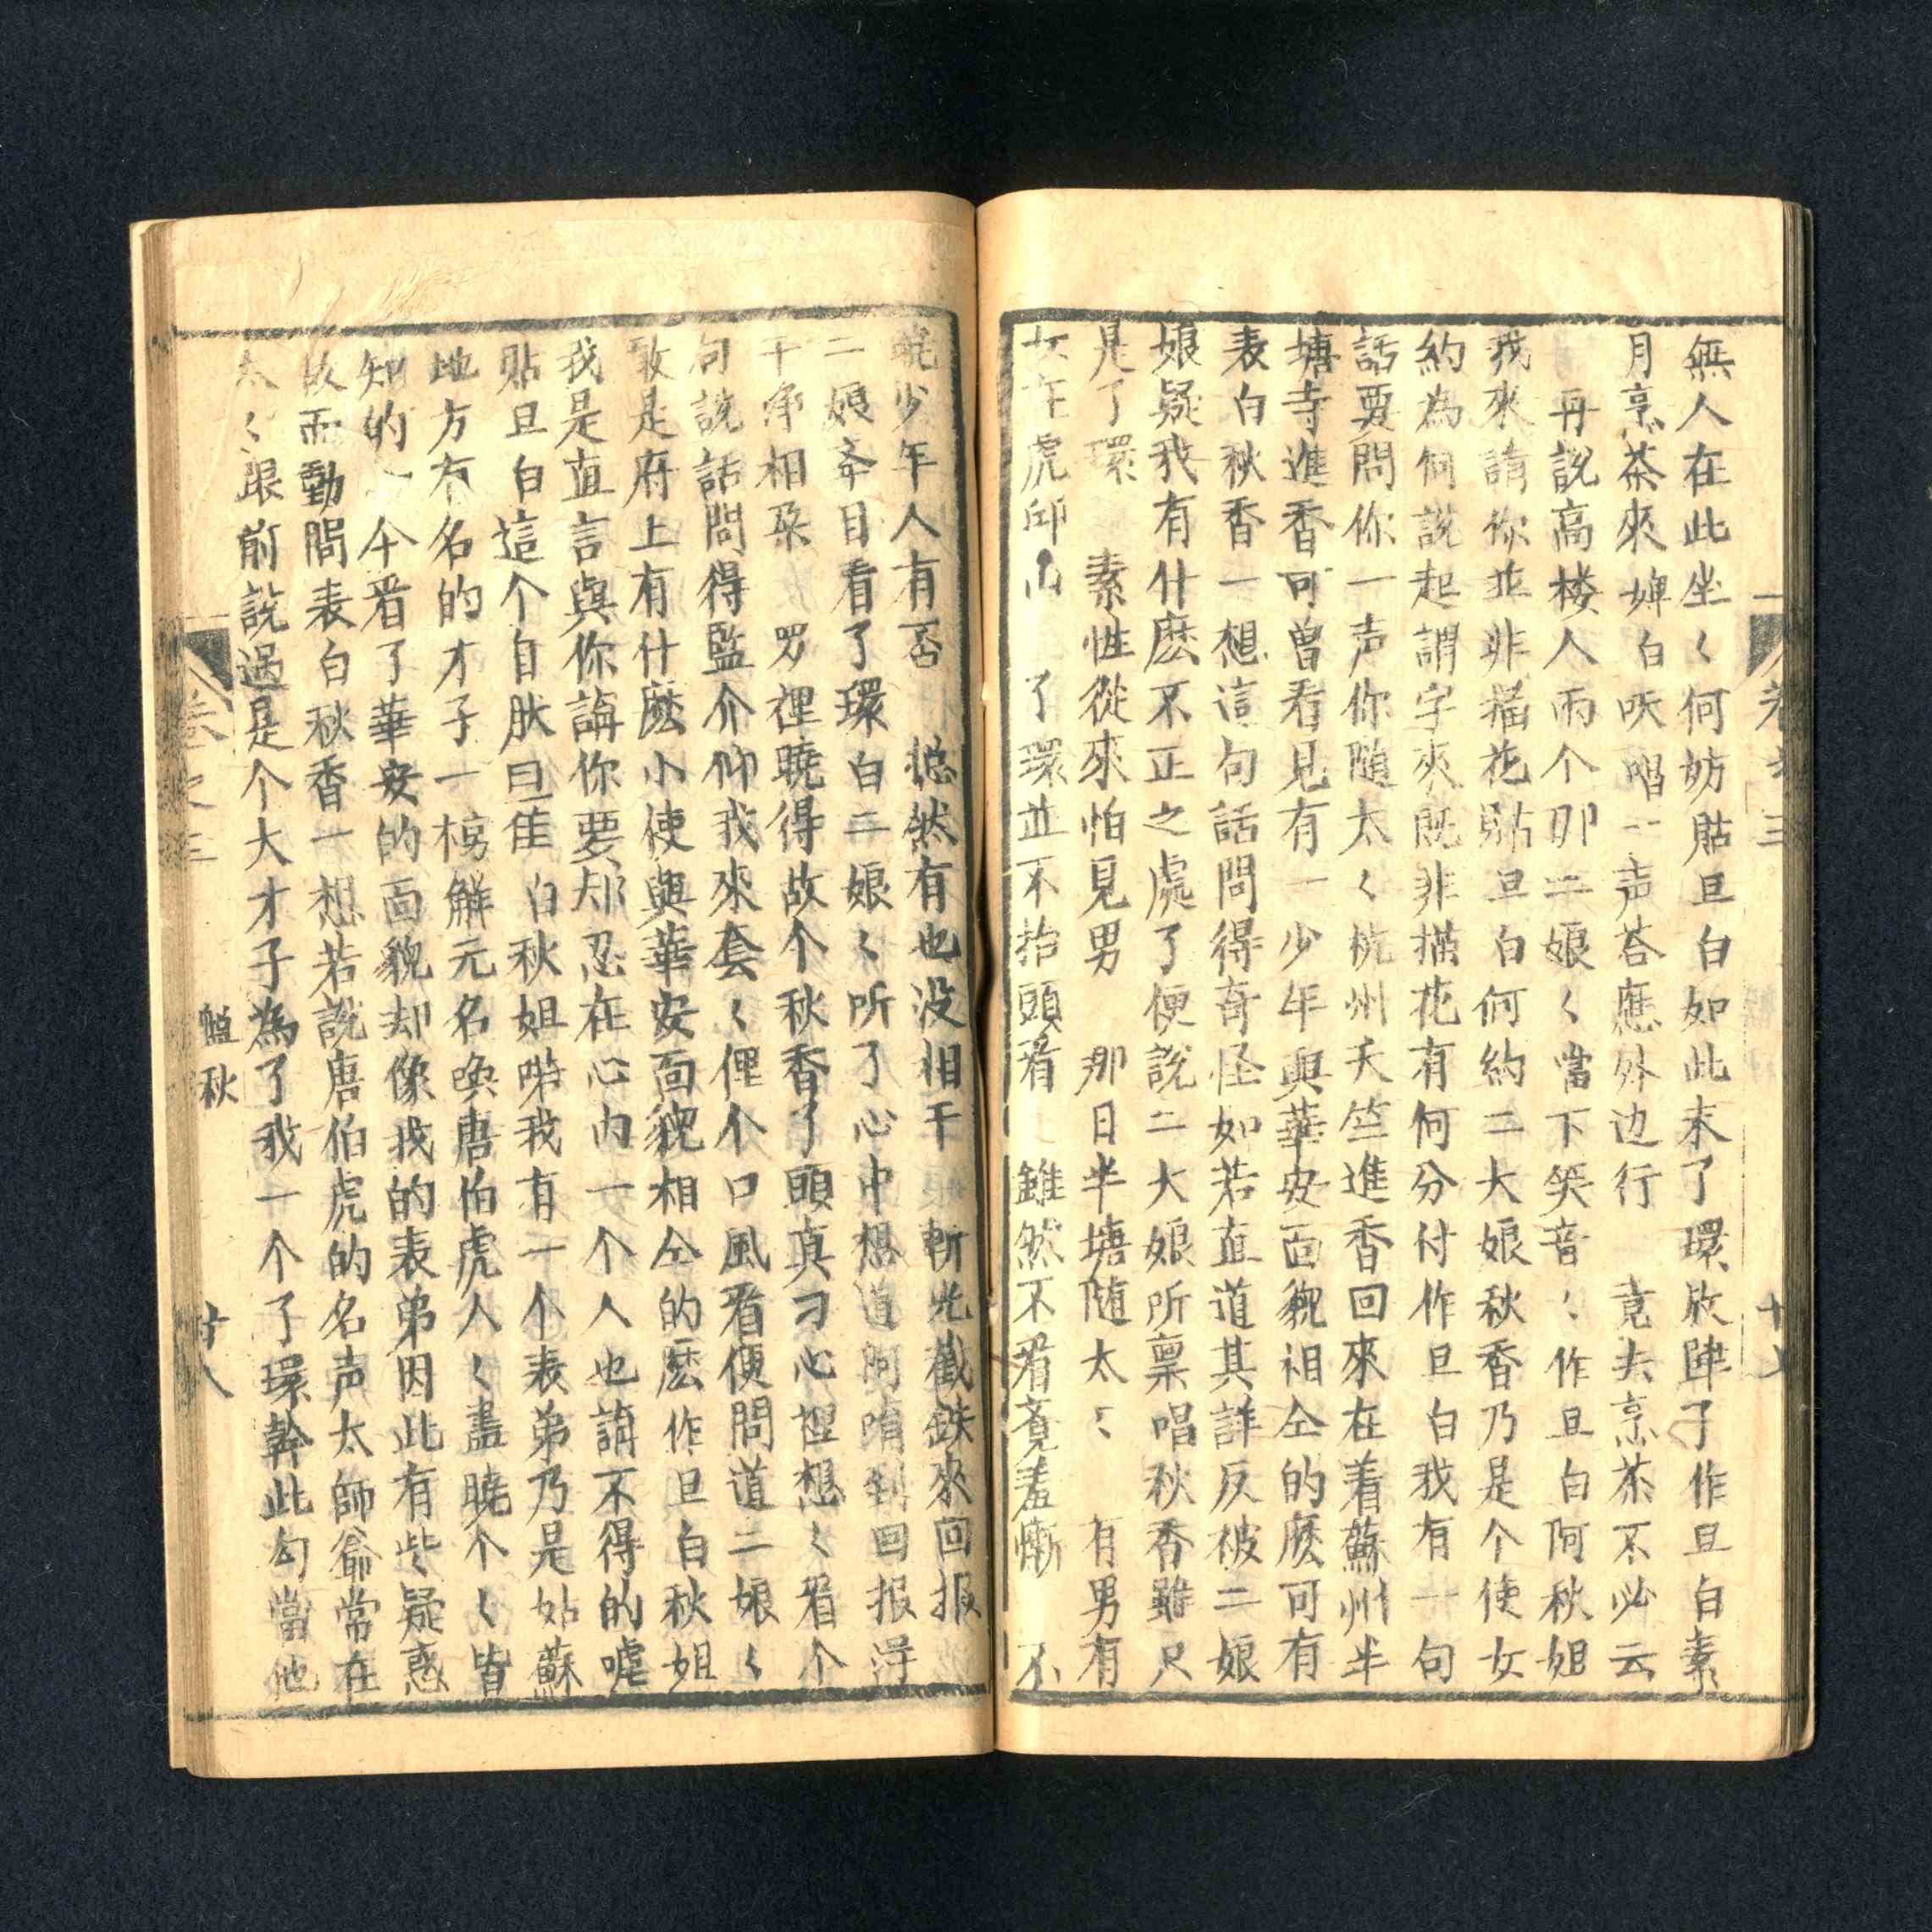 無人在此坐〱何妨貼旦白如此末了環放陣了作旦白素
月烹茶來婢白吷唱一声荅應外边行 竟去烹茶不必云
再說高楼人兩个卯二娘〱當下笑音〱作旦白阿秋姐
我來請你並非描花貼旦白何約二大娘秋香乃是个使女
約為何說起謂字來既非描花有何分付作旦白我有一句
話要問你一声你随太〱杭州天竺進香回來在着蘇州半
塘寺進香可曾看見有一少年與華安面貌相仝的麽可有
表白秋香一想這句話問得奇怪如若直道其詳反被二娘
娘疑我有什麽不正之處了便說二大娘所禀唱秋香雖只
是了環 素性從來怕見男 那日半塘随太〻 有男有
女在虎邱山 了環並不抬頭看 雖然不看竟羞慚 不
少年人有否 搃然有也没相干 斬光截鉄來回报
二娘 目看了環白二娘〱所了心中想道 回报浮
干净相 裡曉得故个秋香了頭真刁心裡想〱看个
句說話問得監介仰我來套〱俚个口風看便問道二娘〱
敢是府上有什麽小使與華安面貌相仝的麽作旦白秋姐
我是直言與你講你要却忍在心内一个人也講不得的噓
貼旦白這个自肰曰隹白秋姐喏我有一个表弟乃是姑蘇
地方有名的才子一榜解元名喚唐伯虎人〱盡曉个〱皆
知的 今看了華安的面貌却像我的表弟因此有些疑惑
故而動問表白秋香一想若說唐伯虎的名声太師爺常在
太〱跟前說過是个大才子為了我一个了環幹此勾當他
卷之三
秋
廿八